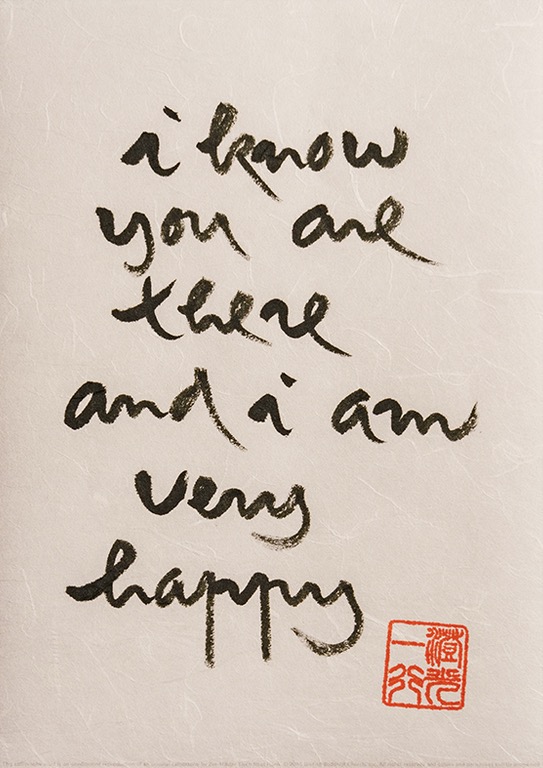 i know
you are
there
and i am
very
happy
一行